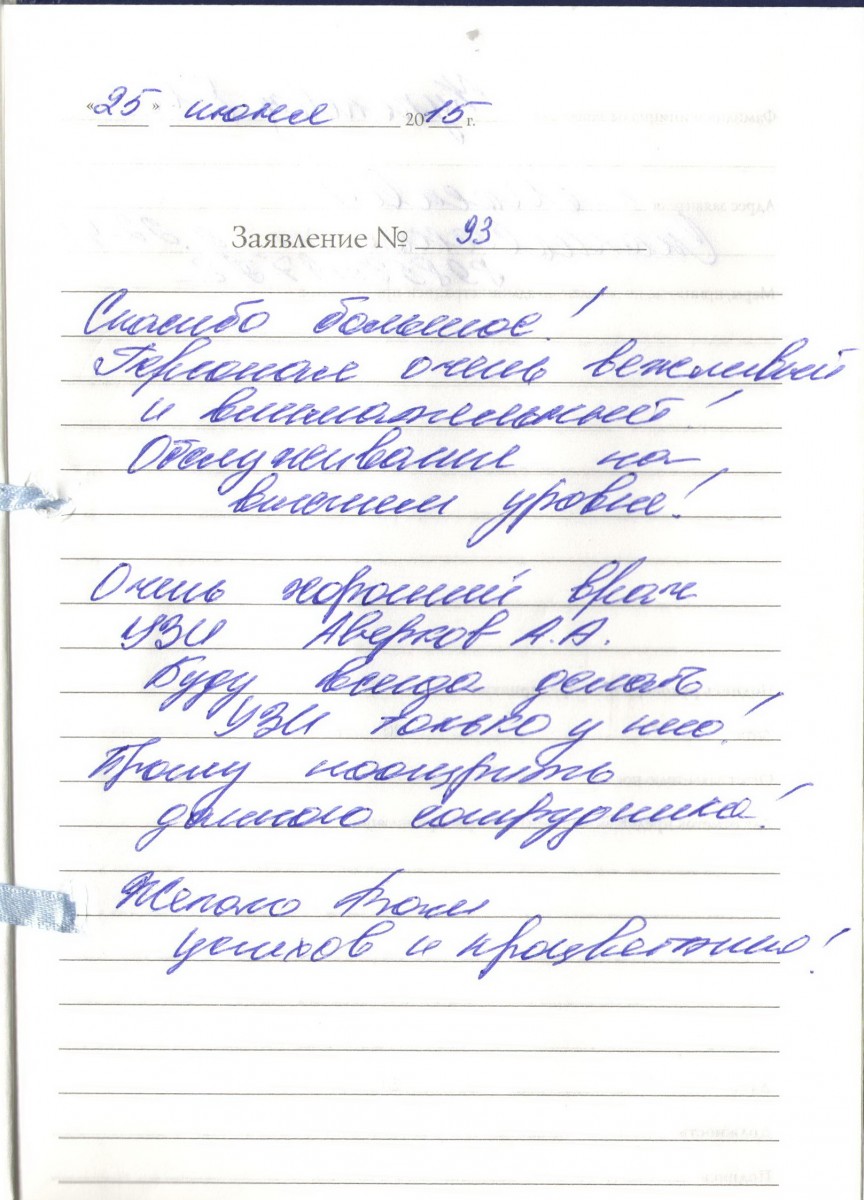 «25» июня 2015 г.
Заявление № 93
Спасибо большое!
Персонал очень вежливый
и внимательный!
Обслуживание на
высшем уровне!
Очень хороший врач
УЗИ Аверков А.А.
Буду всегда делать
УЗИ только у него!
Прошу поощрить
данного сотрудника!
Желаю Вам
успехов и процветания!